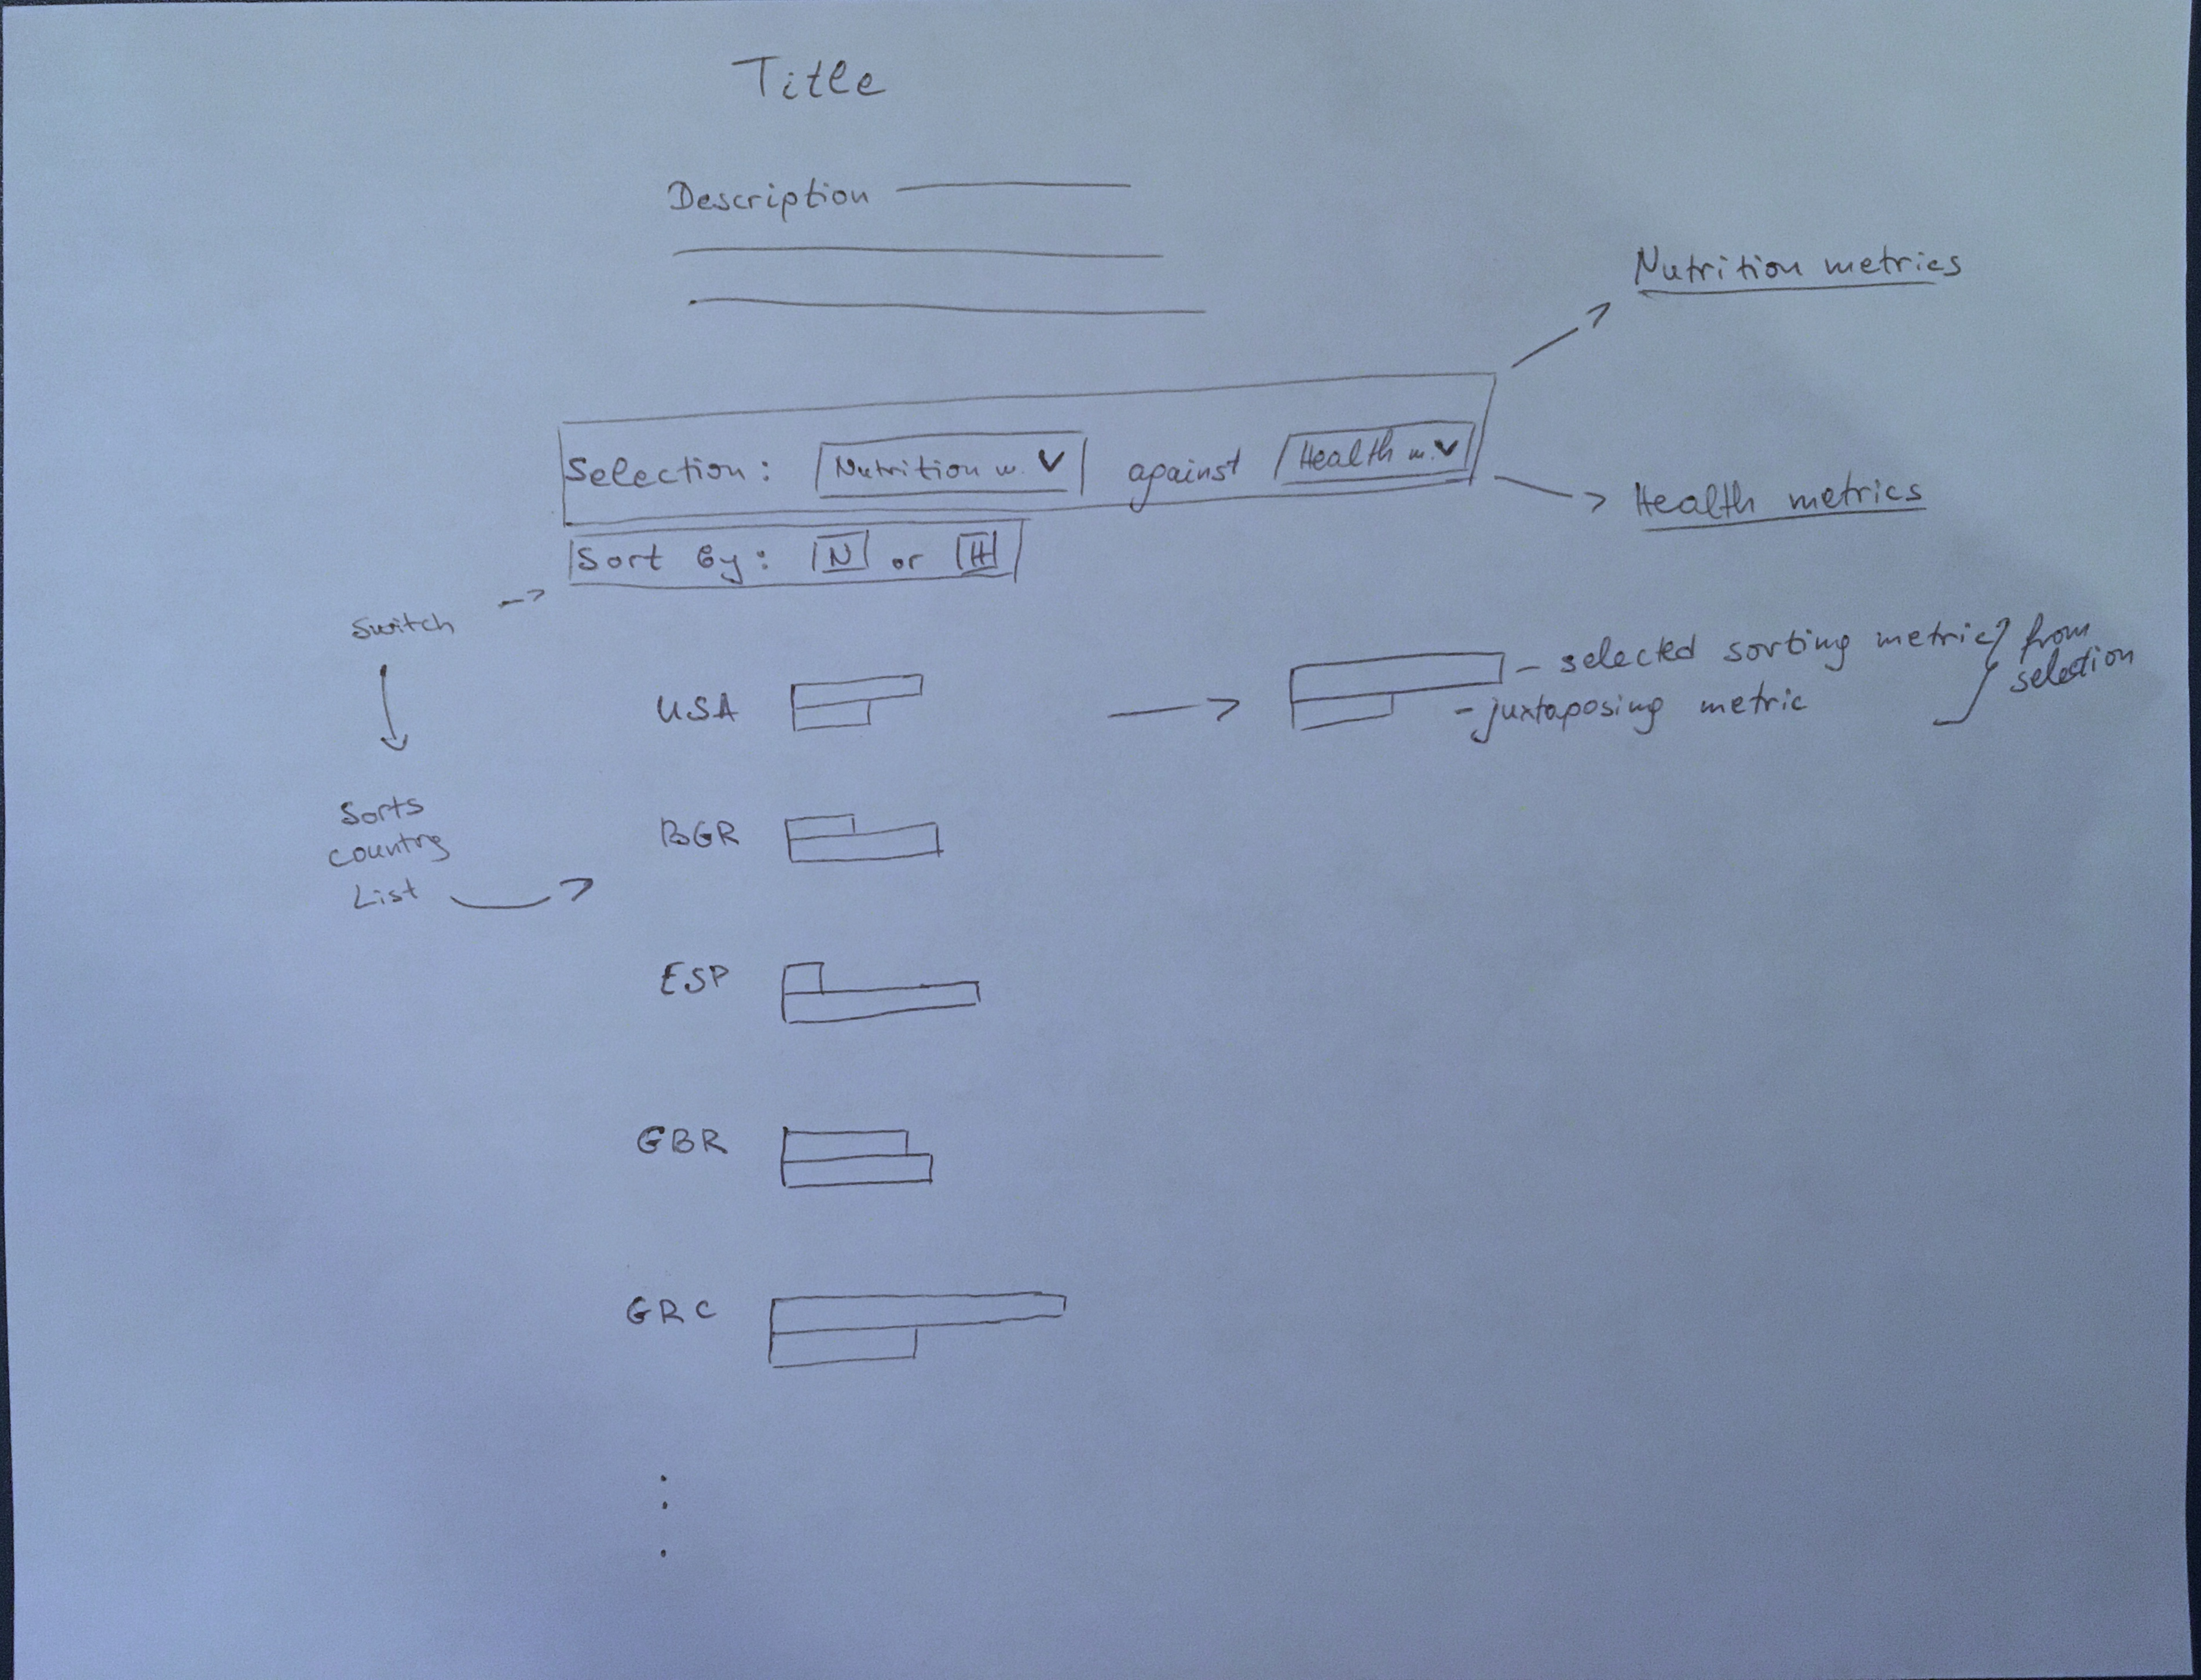 Title
Description
Nutrition metrics
Selection: Nutrition m. against Health m.
Health metrics
Sort by: N or H
Switch
Sorts
country
List
USA
selected sorting metric
juxtaposing metric
from
selection
BGR
ESP
GBR
GRC